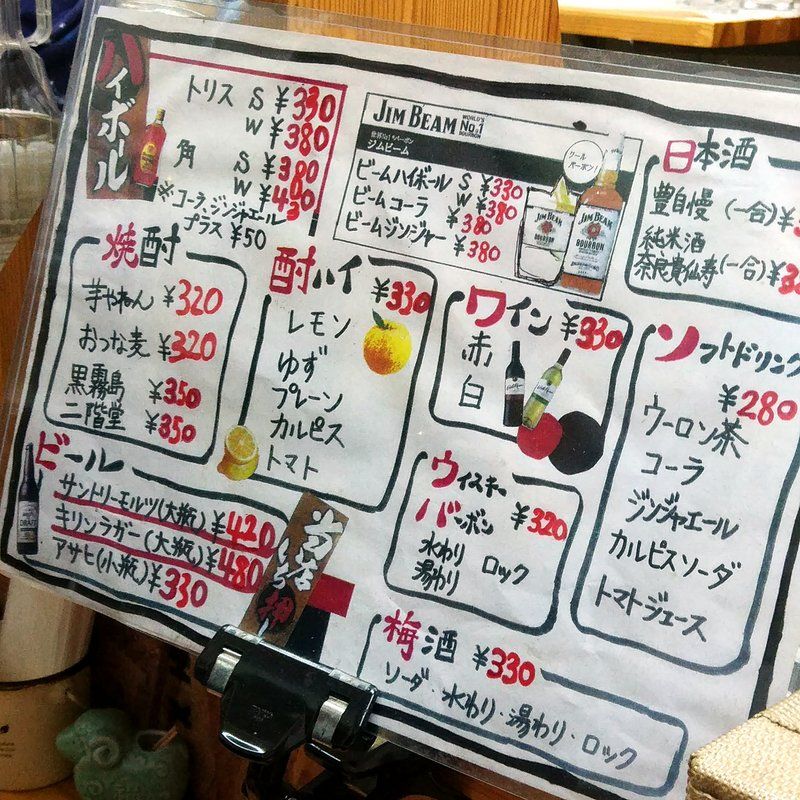 ハイボール
トリス S ¥330
W ¥380
角 S ¥380
W ¥430
※コーラ、ジンジャエール
プラス ¥50
JIM BEAM WORLD'S No.1 BOURBON
世界No.1バーボン
ジムビーム
クールバーボン!
ビームハイボール S ¥330
W ¥380
ビームコーラ ¥380
ビームジンジャー ¥380
JIM BEAM
JIM BEAM
BOURBON
日本酒
豊自慢 (一合) ¥3
純米酒
奈良貴仙寿(一合) ¥3
焼酎
芋やねん ¥320
おつな麦 ¥320
黒霧島 ¥350
二階堂 ¥350
酎ハイ ¥330
レモン
ゆず
プレーン
カルピス
トマト
ワイン ¥330
赤
白
ソフトドリンク
¥280
ウーロン茶
コーラ
ジンジャエール
カルピスソーダ
トマトジュース
ビール
サントリーモルツ(大瓶) ¥420
キリンラガー(大瓶) ¥480
アサヒ(小瓶) ¥330
DRAFT
当店
ウィスキー
バーボン ¥320
水わり ロック
湯わり
梅酒 ¥330
ソーダ・水わり・湯わり・ロック